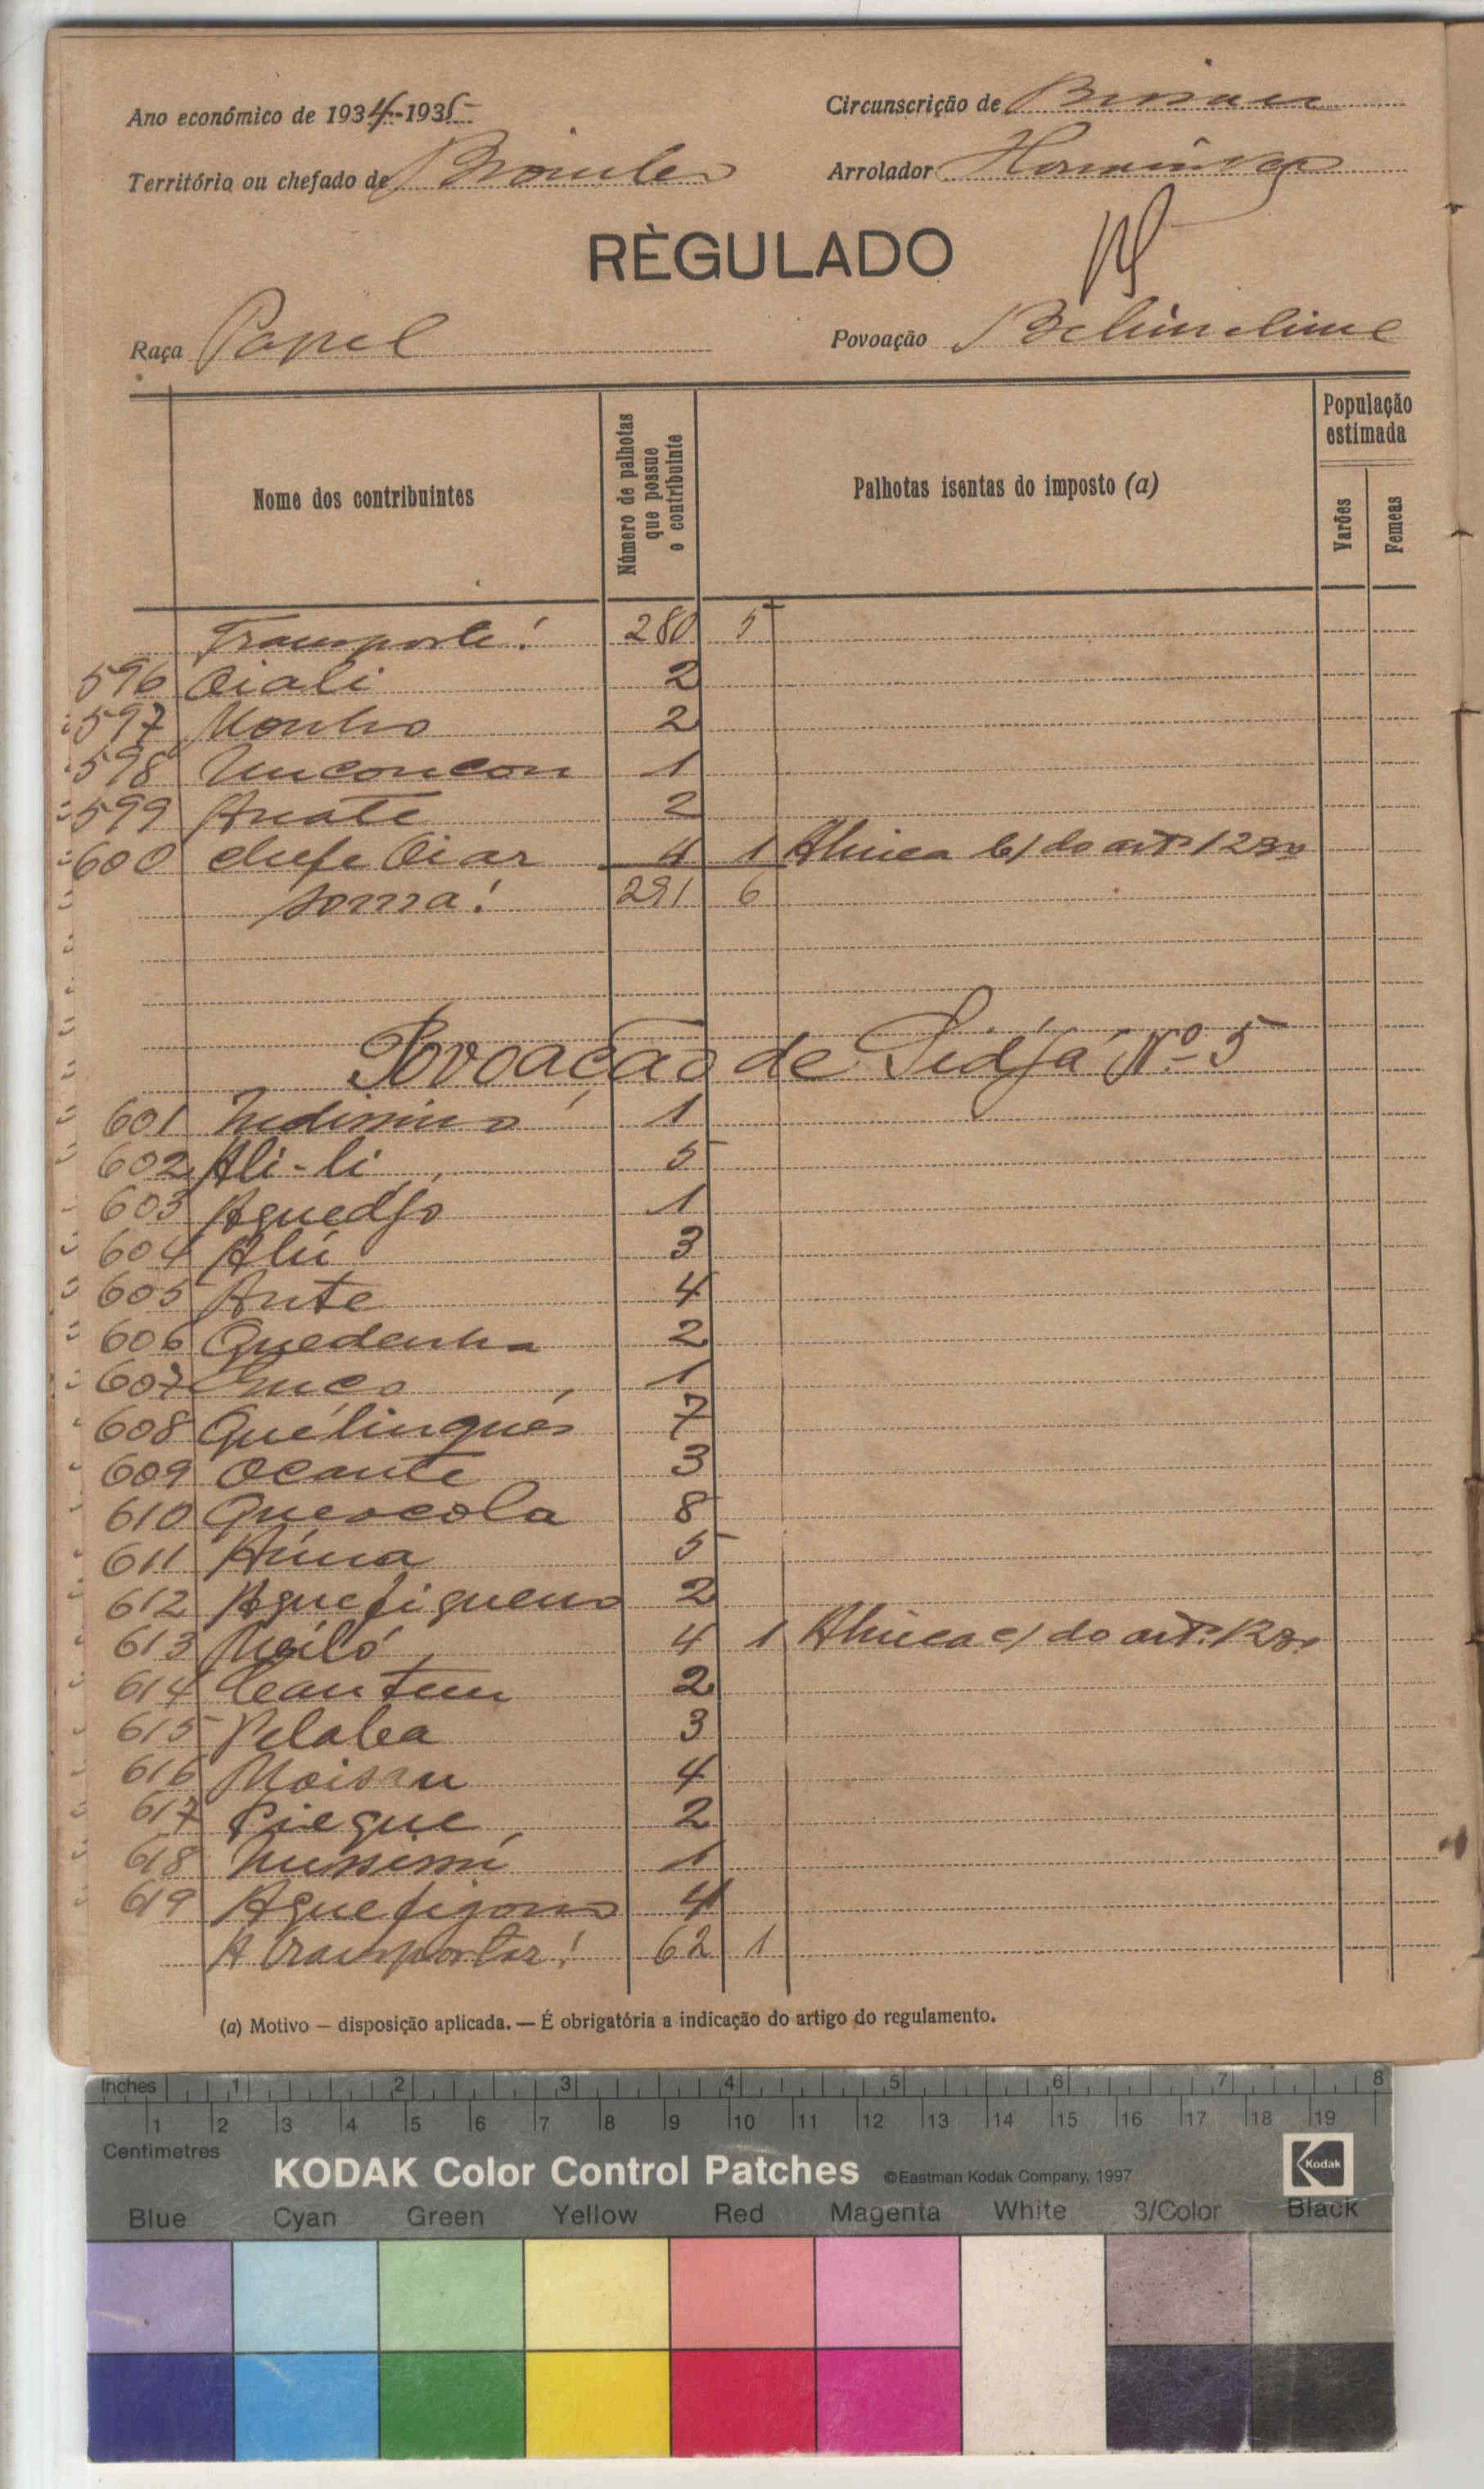 Ano económico de 1934-1935 Circunscrição de Bissau
Território ou chefado de Arrolador
RÈGULADO
Raça Papel Povoação
Nome dos contribuintes Número de palhotas que possue o contribuinte Palhotas isentas do imposto (a) População estimada Varões Femeas
Transporte! 280 5
596 Oiali 2
597 Monho 2
598 Unconcon 1
599 Anate 2
600 chefe Oiar 4 1 Alinea b) do artº 12º
Soma! 291 6
Povoação de Sidjá Nº 5
601 1
602 Ali-li 5
603 Aguedjó 1
604 Alú 3
605 Ante 4
606 Quedenha 2
607 1
608 Quélinqués 7
609 Ocante 3
610 Queocola 8
611 5
612 2
613 4 1 Alinea c) do artº 12º
614 Cantum 2
615 Pelaba 3
616 Moisau 4
617 Piegue 2
618 1
619 4
A transportar! 62 1
(a) Motivo — disposição aplicada. — É obrigatória a indicação do artigo do regulamento.
Inches 1 2 3 4 5 6 7 8
1 2 3 4 5 6 7 8 9 10 11 12 13 14 15 16 17 18 19
Centimetres
KODAK Color Control Patches ©Eastman Kodak Company, 1997 Kodak
Blue Cyan Green Yellow Red Magenta White 3/Color Black